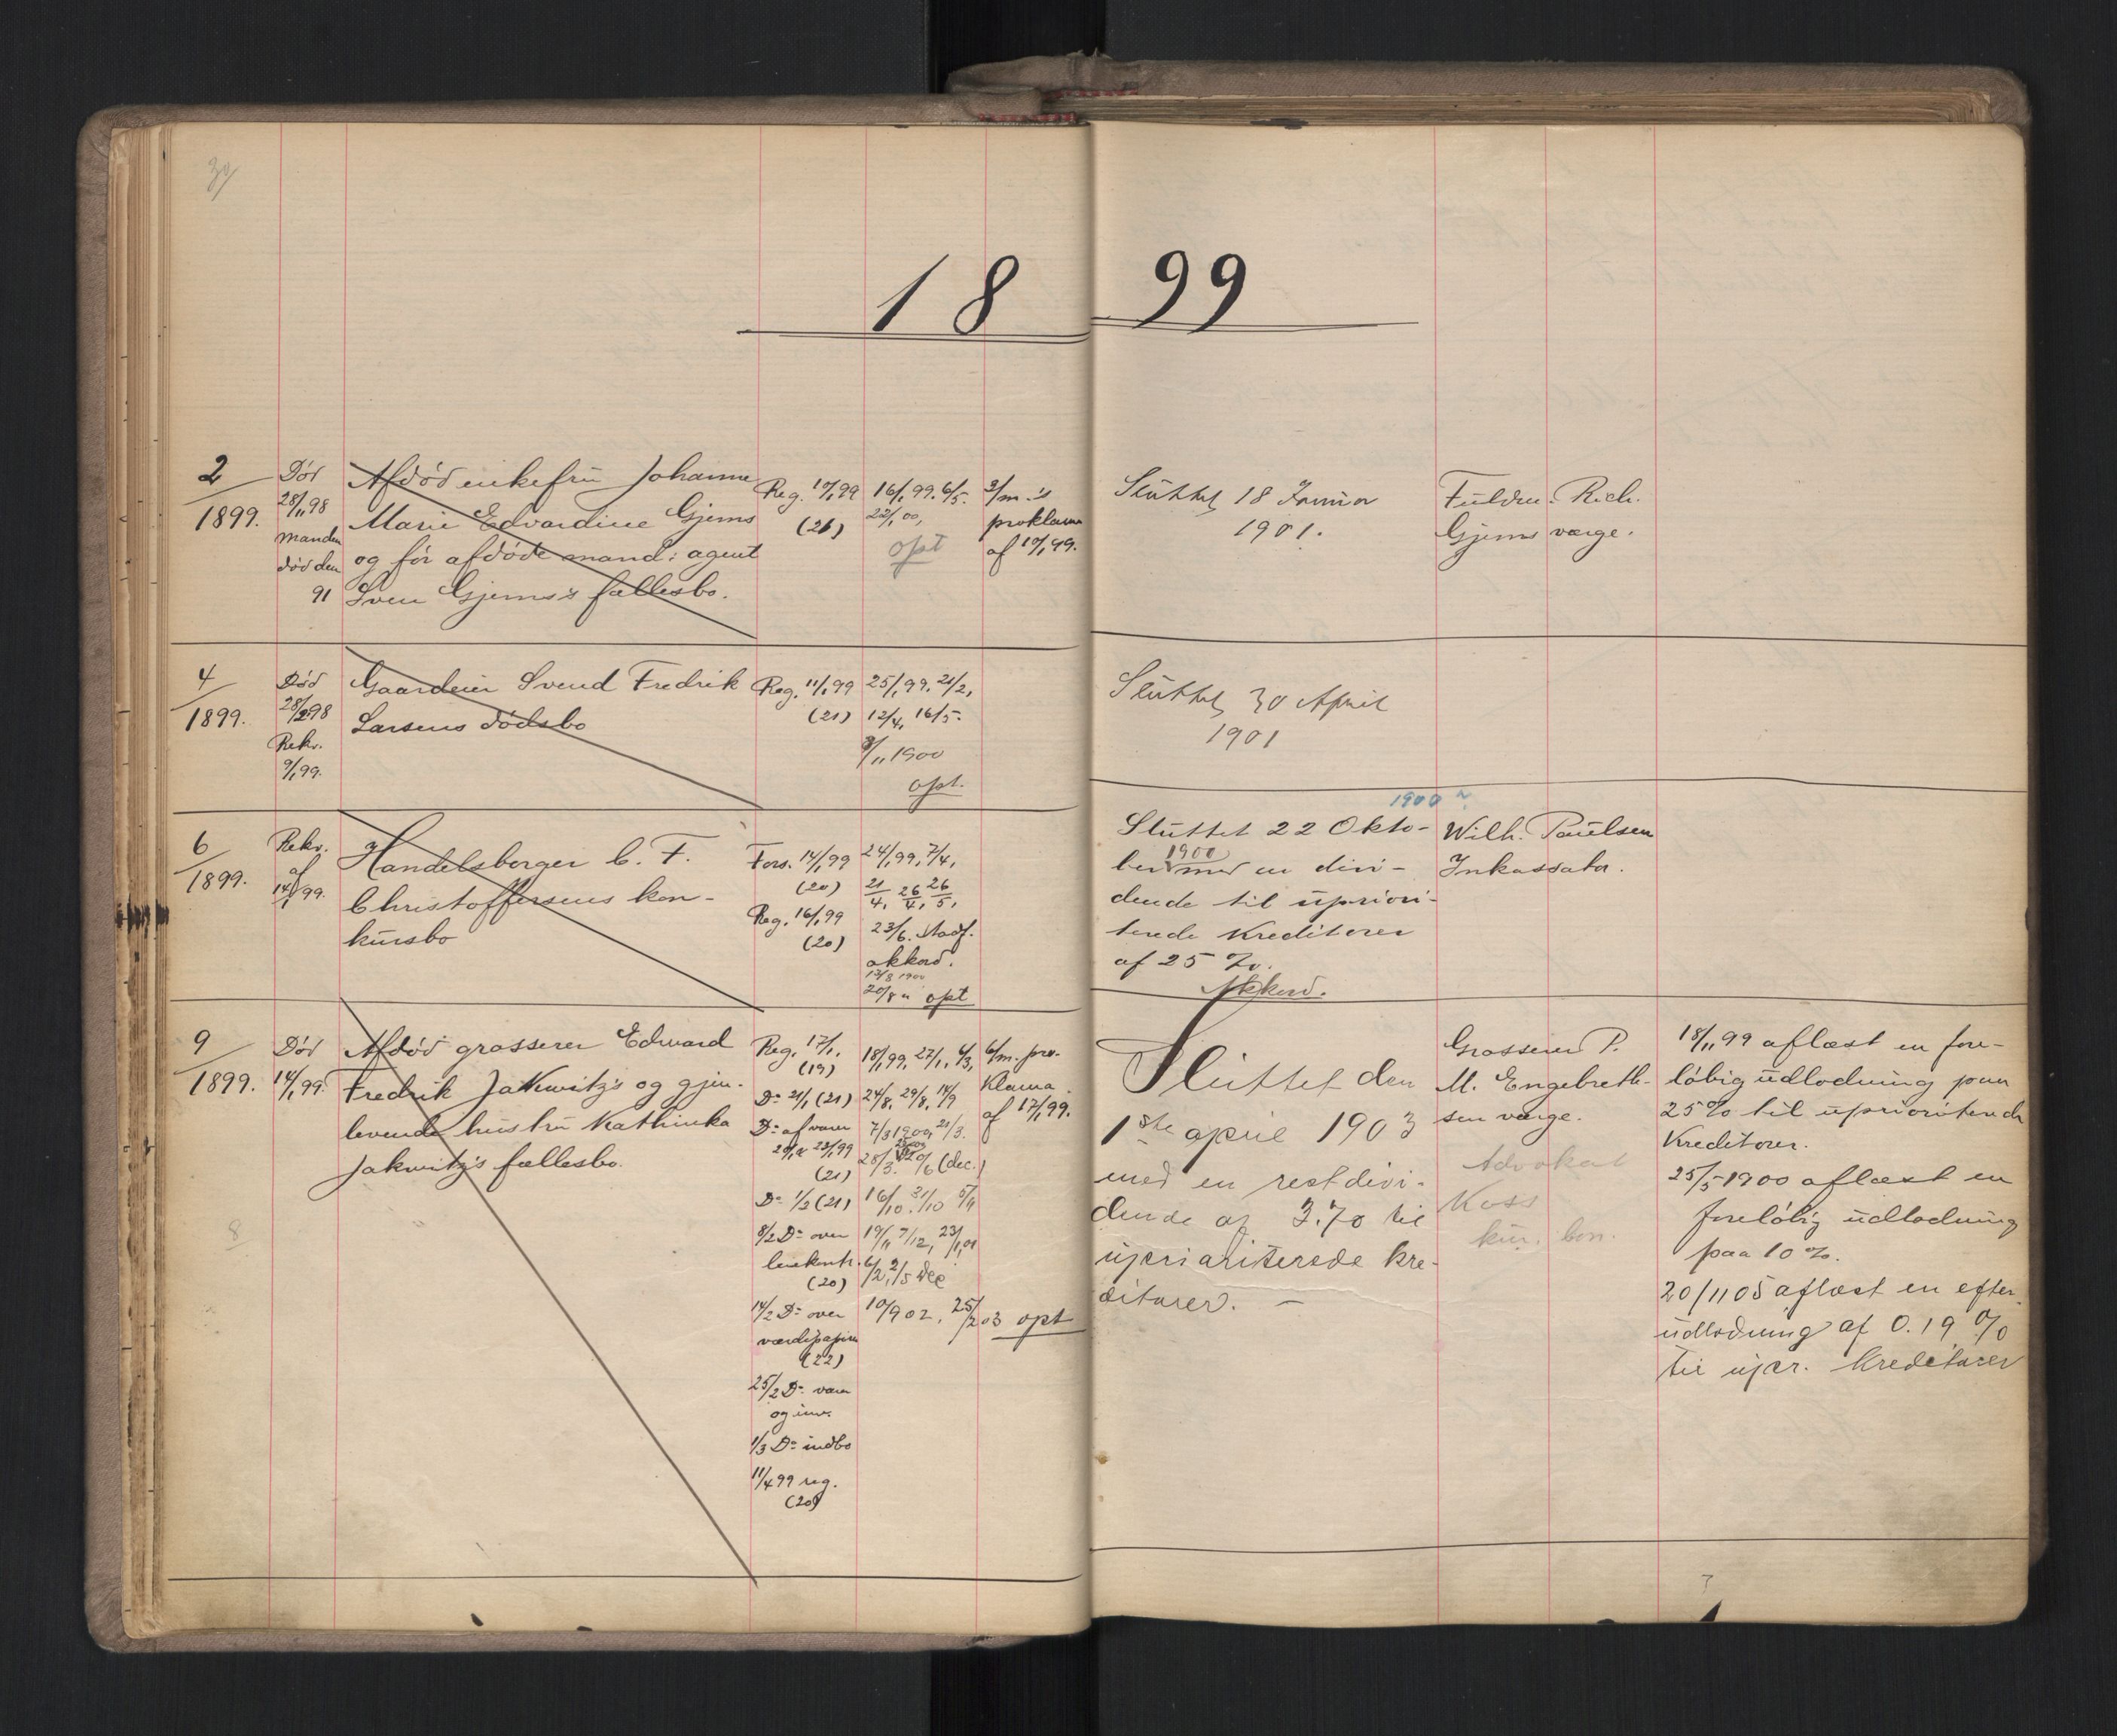 30
18 99
2
1899.
Død
28/11 98
manden
død den
91
Afdød enkefrü Johanne
Marie Edvardine Gjems
og før afdøde mand: agent
Sven Gjems's fællesbo.
Reg. 10/1 99
(26)
16/1 99. 6/5.
22/1 00,
opt
3/m.'s
proklama
af 10/1 99.
Slüttet 18 Janüar
1901.
Füldm. Rich.
Gjems værge.
4
1899.
Død
28/12 98
Rekv.
9/1 99.
Gaardeier Svend Fredrik
Larsens dødsbo
Reg. 11/1 99
(21)
25/1 99. 21/2,
12/4, 16/5.
8/11 1900
opt.
Slüttet 30 April
1901
6
1899.
Rekv.
af
14/1 99.
Handelsborger C. F.
Christoffersens kon-
kürsbo
Fors. 14/1 99
(20)
Reg. 16/1 99
(20)
24/1 99, 7/4,
21/4, 26/4, 26/5,
23/6. stadf.
akkord.
13/8 1900
20/8 " opt
1900
Slüttet 22 Okto-
ber 1900 med en divi-
dende til üpriori-
terede Kreditorer
af 25 %.
Akkord.
Wilh. Paülsen
Inkassator.
9
1899.
Død
14/1 99.
Afdød grosserer Edward
Fredrik Jakwitz's og gjen-
levende hüstrü Kathinka
Jakwitz's fællesbo.
Reg. 17/1.
(19)
Do 21/1 (21)
Do af varer
23/1 99
(21)
Do 1/2 (21)
8/2 Do over
(20)
14/2 Do over
værdipapirer
(22)
25/2 Do varer
og inv.
1/3 Do indbo
11/4 99 reg.
(20)
18/1 99, 27/1, 6/3,
24/8, 29/8, 14/9
7/3 1900, 21/3.
28/3. 20/6 (dec.)
16/10. 31/10 5/11
19/11 7/12, 23/1 01
6/2, 2/5 dec
10/9 02, 25/2 03 opt
6/m. pro-
klama
af 17/1 99.
Slüttet den
1ste april 1903
med en restdivi-
dende af 3.70 til
üprioriterede kre-
ditorer. —
Grosserer P.
M. Engebreth-
sen værge.
Advokat
Koss
kür. bon.
18/11 99 aflæst en fore-
løbig üdlodning paa
25% til üprioriterede
Kreditorer.
25/5 1900 aflæst en
foreløbig üdlodning
paa 10 %.
20/11 05 aflæst en efter-
üdlodning af 0.19 %
til üpr. kreditorer
8
7